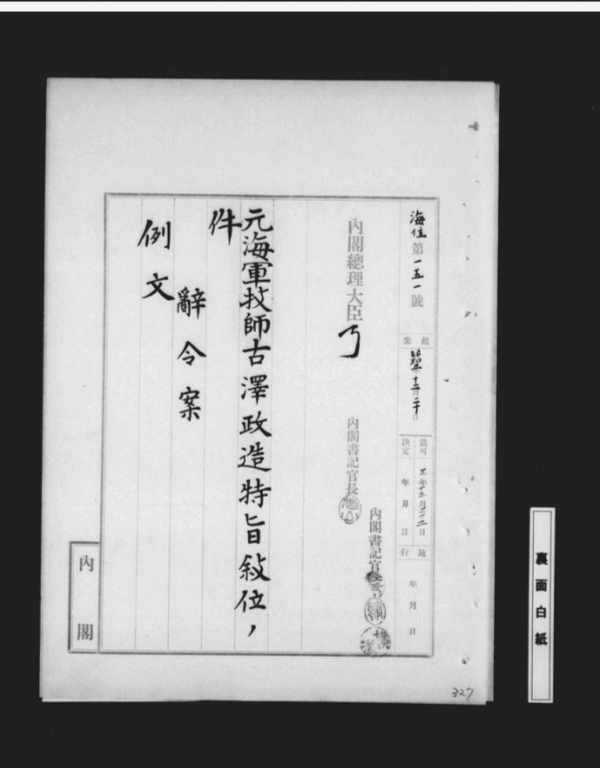 海位第一五一號
起案
裁可
決定 年 月 日
施行 年 月 日
內閣總理大臣
內閣書記官長
內閣書記官
元海軍技師古澤政造特旨敍位ノ
件
辭令案
例文
內閣
裏面白紙
327